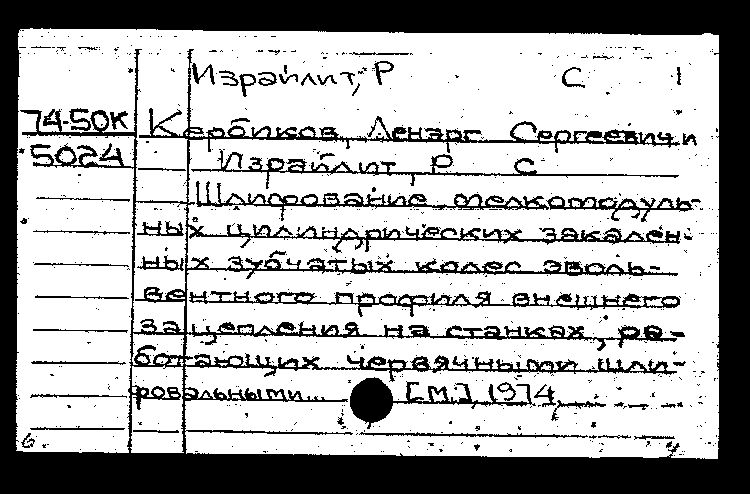 Израйлит, Р С 1
74-50К Кербиков, Ленарг Сергеевич и
5024 Израйлит, Р С
Шлифование мелкомодуль-
ных цилиндрических закален-
ных зубчатых колес эволь-
вентного профиля внешнего
зацепления на станках, ра-
ботающих червячными шли-
фовальными... [М.], 1974
6.